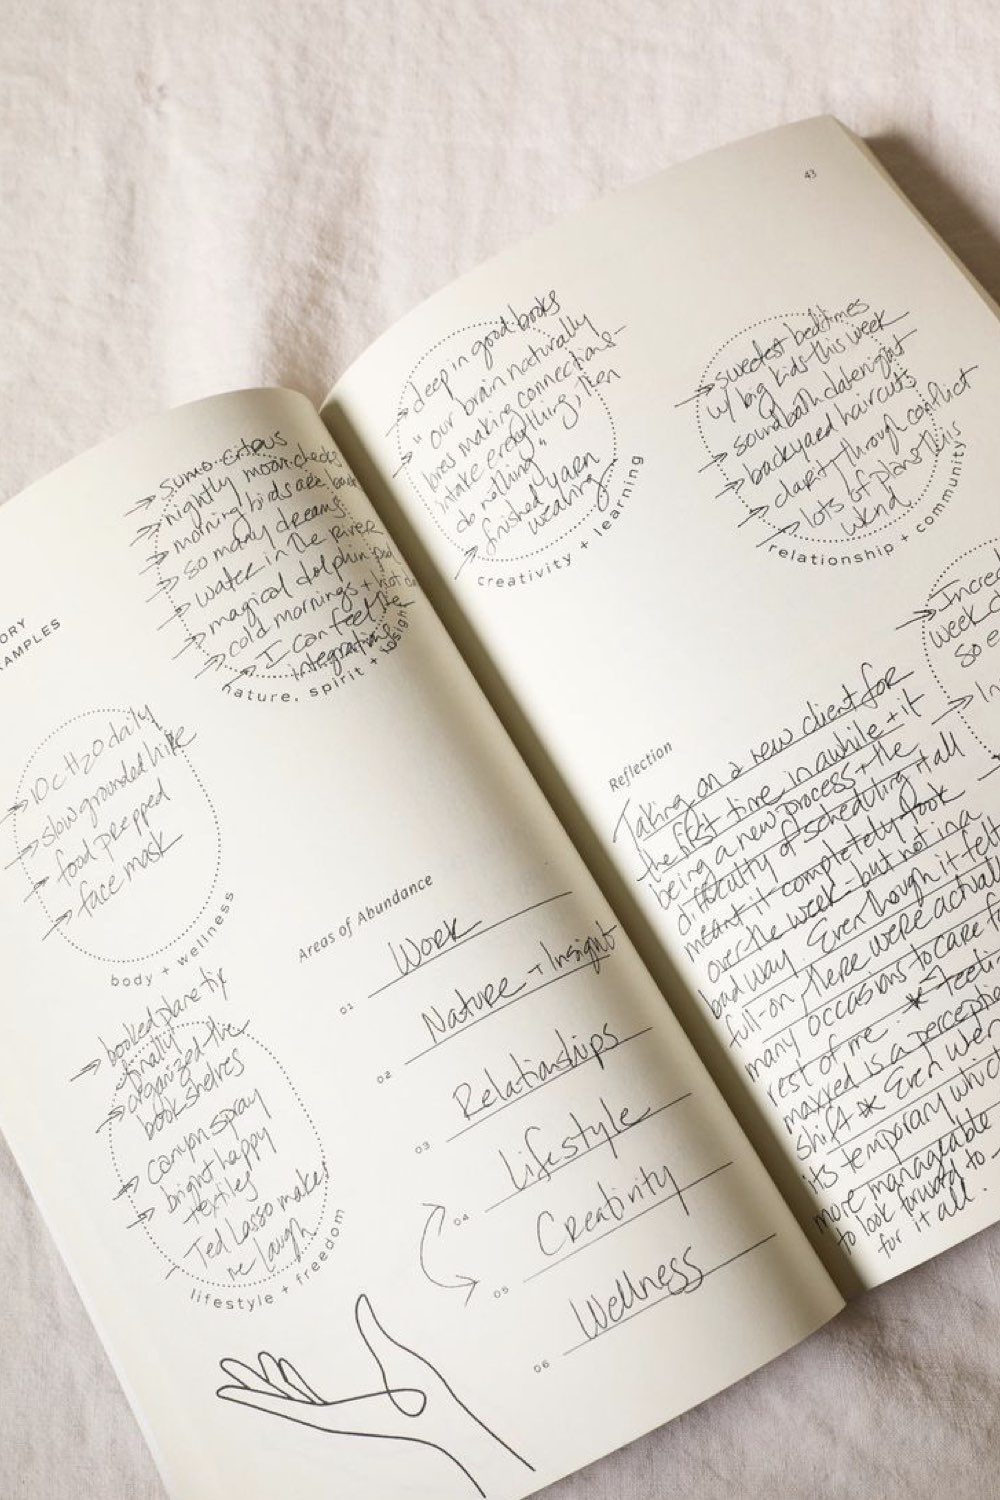 ORY
AMPLES
→ sumo citrus
→ nightly moon checks
→ morning birds are back
→ so many dreams
→ water in the river
→ magical dolphin pod
→ cold mornings + hot
→ I can feel the
integrating
nature, spirit + insight
→ 10 c H2O daily
→ slow grounded hike
→ food prepped
→ face mask
body + wellness
→ booked plane tix
finally
→ organized the
bookshelves
→ canyon spray
→ bright happy
textiles
Ted Lasso makes
me laugh
lifestyle + freedom
Areas of Abundance
01 Work
02 Nature + Insight
03 Relationships
04 Lifestyle
05 Creativity
06 Wellness
43
→ deep in good books
→ "our brain naturally
loves making connections-
intake everything, then
do nothing"
→ finished yarn
weaving
creativity + learning
→ sweetest bedtimes
w/ big kids this week
→ soundbath datenight
→ backyard haircuts
→ clarity through conflict
→ lots of plans this
wknd
relationship + community
→ Incred
week
so e
→ In
Reflection
Taking on a new client for
the first time in awhile + it
being a new process + the
difficulty of scheduling it all
meant it completely took
over the week - but not in a
bad way. Even though it felt
full-on, there were actually
many occasions to care f
rest of me. * feeli
maxxed is a perceptio
shift * Even wer
its temporary which
more manageable
to look forward to -
for it all.